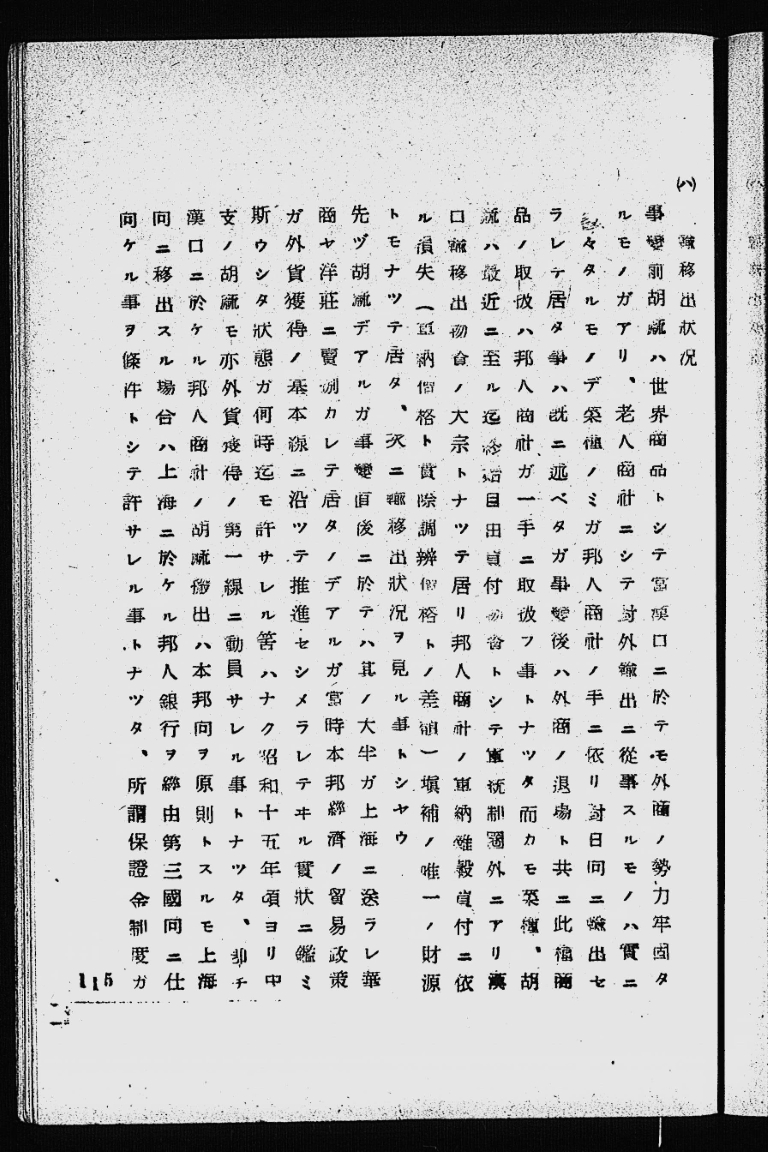 (ハ) 輸移出狀況
事變前胡麻ハ世界商品トシテ當漢口ニ於テモ外商ノ勢力牢固タ
ルモノガアリ、老人商社ニシテ對外輸出ニ從事スルモノハ實ニ
々タルモノデ菜種ノミガ邦人商社ノ手ニ依リ對日向ニ輸出セ
ラレテ居タ事ハ既ニ述ベタガ事變後ハ外商ノ退場ト共ニ此種商
品ノ取扱ハ邦人商社ガ一手ニ取扱フ事トナツタ而カモ菜種、胡
麻ハ最近ニ至ル迄終始自由買付物資トシテ軍統制圈外ニアリ漢
口輸移出物資ノ大宗トナツテ居リ邦人商社ノ軍納雜穀買付ニ依
ル損失(軍納價格ト實際調辨價格トノ差額)塡補ノ唯一ノ財源
トモナツテ居タ、次ニ輸移出狀況ヲ見ル事トシヤウ
先ヅ胡麻デアルガ事變直後ニ於テハ其ノ大半ガ上海ニ送ラレ華
商ヤ洋莊ニ賣捌カレテ居タノデアルガ當時本邦經濟ノ貿易政策
ガ外貨獲得ノ基本線ニ沿ツテ推進セシメラレテヰル實狀ニ鑑ミ
斯ウシタ狀態ガ何時迄モ許サレル筈ハナク昭和十五年頃ヨリ中
支ノ胡麻モ亦外貨獲得ノ第一線ニ動員サレル事トナツタ、卽チ
漢口ニ於ケル邦人商社ノ胡麻搬出ハ本邦向ヲ原則トスルモ上海
向ニ移出スル場合ハ上海ニ於ケル邦人銀行ヲ經由第三國向ニ仕
向ケル事ヲ條件トシテ許サレル事トナツタ、所謂保證金制度ガ
115